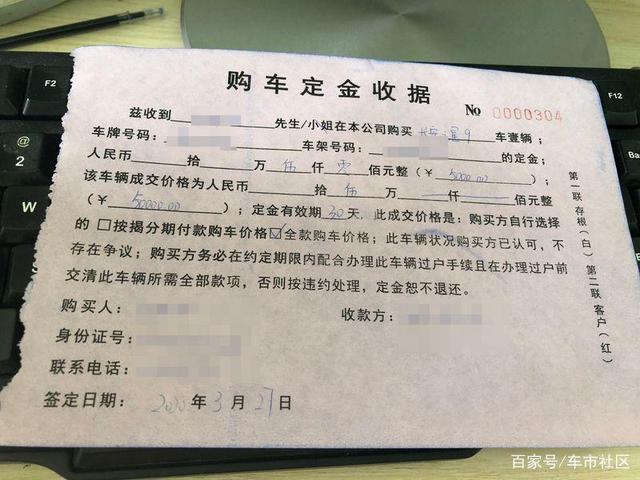 购车定金收据
No 0000304
兹收到 先生/小姐在本公司购买 星9 车壹辆；
车牌号码： 车架号码： 的定金；
人民币 拾 万 伍 仟 零 佰元整（￥ 5000.00 ）；
该车辆成交价格为人民币 拾 伍 万 仟 佰元整
（￥ 50000.00 ）；定金有效期 30 天，此成交价格是：购买方自行选择
的 □按揭分期付款购车价格☑全款购车价格；此车辆状况购买方已认可，不
存在争议；购买方务必在约定期限内配合办理此车辆过户手续且在办理过户前
交清此车辆所需全部款项，否则按违约处理，定金恕不退还。
购买人： 收款方：
身份证号：
联系电话：
签定日期： 2020 年 3 月 27 日
第一联存根（白）第二联客户（红）
F2
F12
@
2
W
Ba
百家号/车市社区